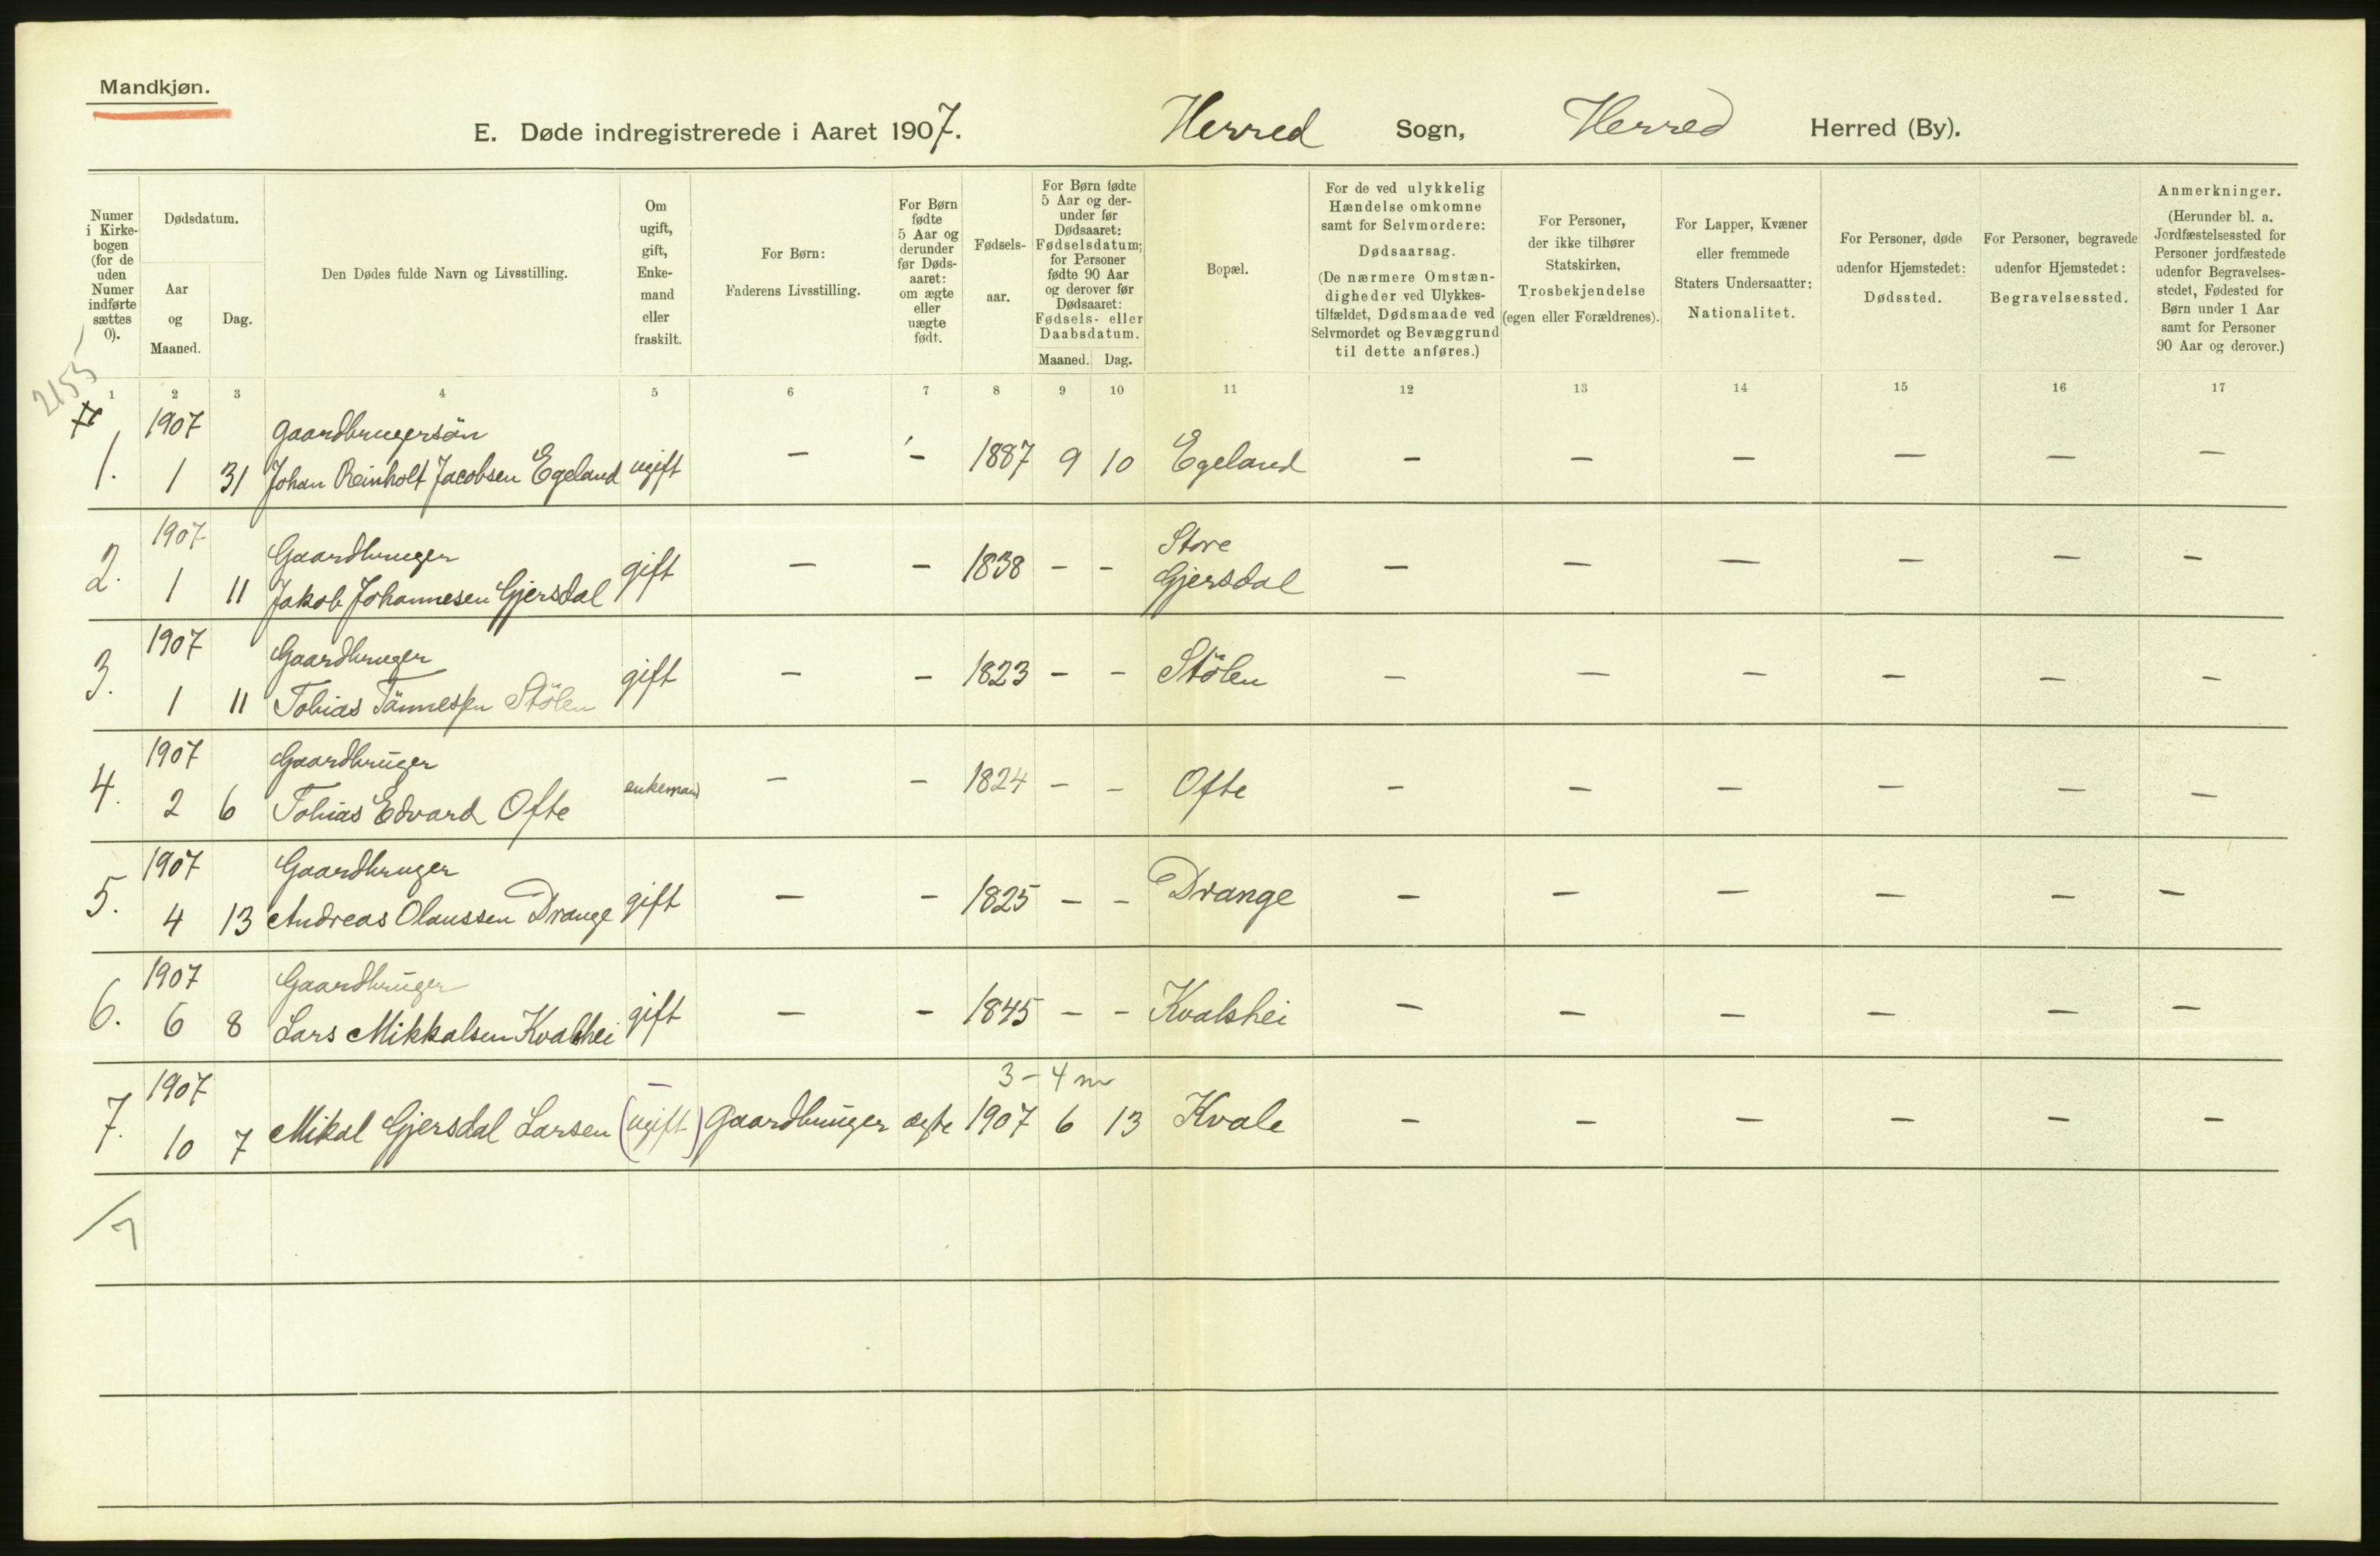 Mandkjøn.
E. Døde indregistrerede i Aaret 1907. Herred Sogn, Herred Herred (By).
Numer
i Kirke-
bogen
(for de
uden
Numer
indførte
sættes
0).
Dødsdatum.
Aar
og
Maaned.
Dag.
Den Dødes fulde Navn og Livsstilling.
Om
ugift,
gift,
Enke-
mand
eller
fraskilt.
For Børn:
Faderens Livsstilling.
For Børn
fødte
5 Aar og
derunder
før Døds-
aaret:
om ægte
eller
uægte
født.
Fødsels-
aar.
For Børn fødte
5 Aar og der-
under før
Dødsaaret:
Fødselsdatum;
for Personer
fødte 90 Aar
og derover før
Dødsaaret:
Fødsels- eller
Daabsdatum.
Maaned. Dag.
Bopæl.
For de ved ulykkelig
Hændelse omkomne
samt for Selvmordere:
Dødsaarsag.
(De nærmere Omstæn-
digheder ved Ulykkes-
tilfældet, Dødsmaade ved
Selvmordet og Bevæggrund
til dette anføres.)
For Personer,
der ikke tilhører
Statskirken,
Trosbekjendelse
(egen eller Forældrenes).
For Lapper, Kvæner
eller fremmede
Staters Undersaatter:
Nationalitet.
For Personer, døde
udenfor Hjemstedet:
Dødssted.
For Personer, begravede
udenfor Hjemstedet:
Begravelsessted.
Anmerkninger.
(Herunder bl. a.
Jordfæstelsessted for
Personer jordfæstede
udenfor Begravelses-
stedet, Fødested for
Børn under 1 Aar
samt for Personer
90 Aar og derover.)
2155
1 2 3 4 5 6 7 8 9 10 11 12 13 14 15 16 17
1907 gaardbrugersön
1. 1 31 Johan Reinholt Jacobsen Egeland ugift – – 1887 9 10 Egeland – – – – – –
1907 Gaardbruger Store
2. 1 11 Jakob Johannesen Gjersdal gift – – 1838 – – Gjersdal – – – – – –
1907 Gaardbruger
3. 1 11 Tobias Tönnessen Stölen gift – – 1823 – – Stölen – – – – – –
1907 Gaardbruger
4. 2 6 Tobias Edvard Ofte enkemand – – 1824 – – Ofte – – – – – –
1907 Gaardbruger
5. 4 13 Andreas Olaussen Drange gift – – 1825 – – Drange – – – – – –
1907 Gaardbruger
6. 6 8 Lars Mikkalsen Kvalshei gift – – 1845 – – Kvalshei – – – – – –
1907 – 3 – 4 m
7. 10 7 Mikal Gjersdal Larsen (ugift) gaardbruger ægte 1907 6 13 Kvale – – – – – –
/7